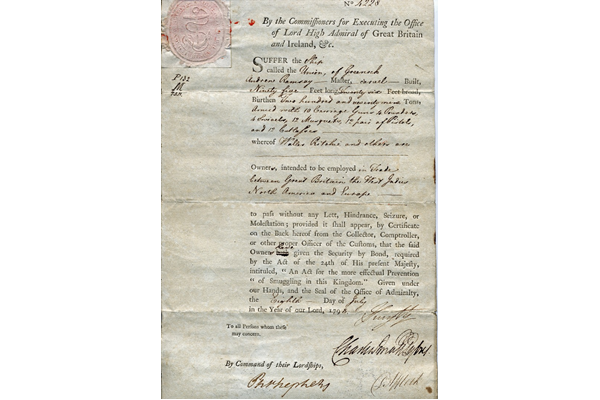 No 4228
By the Commissioners for Executing the Office
of Lord High Admiral of Great Britain
and Ireland, &c.
SUFFER the Ship
called the Union, of Greenock
Andrew Ramsay Master, Built,
Ninety five Feet long twenty six Feet broad,
Burthen Two hundred and seventy nine Tons
Armed with 10 Carriage Guns 4 Pounders,
4 Swivels, 12 Musquets, 12 pair of Pistols,
and 12 Cutlasses
whereof Walter Ritchie and others are
Owners, intended to be employed in Trade
between Great Britain the West Indies
North America and Europe
to pass without any Lett, Hindrance, Seizure, or
Molestation; provided it shall appear, by Certificate
on the Back hereof from the Collector, Comptroller,
or other proper Officer of the Customs, that the said
Owners have given the Security by Bond, required
by the Act of the 24th of His present Majesty,
intituled, "An Act for the more effectual Prevention
"of Smuggling in this Kingdom." Given under
our Hands, and the Seal of the Office of Admiralty,
the Eighth Day of July
in the Year of our Lord, 179
To all Persons whom these
may concern.
By Command of their Lordships,